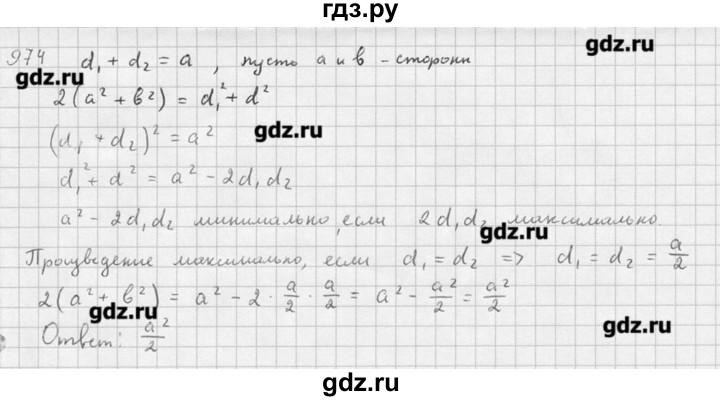 гдз.ру
974 d₁ + d₂ = a , пусть a и в - стороны
gdz.ru gdz.ru
2(a² + в²) = d₁² + d²
(d₁ + d₂)² = a² gdz.ru
d₁² + d² = a² - 2d₁d₂
a² - 2d₁d₂ минимально, если 2d₁d₂ максимально.
gdz.ru
Произведение максимально, если d₁ = d₂ => d₁ = d₂ = a/2
2(a² + в²) = a² - 2 · a/2 · a/2 = a² - a²/2 = a²/2
gdz.ru gdz.ru
Ответ: a²/2
gdz.ru